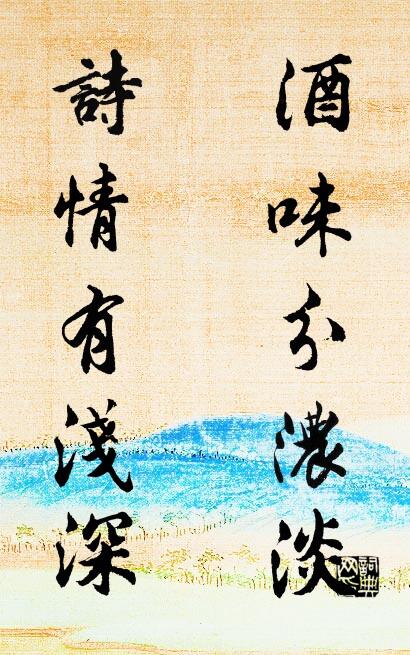 酒味分濃淡
詩情有淺深
詞典网